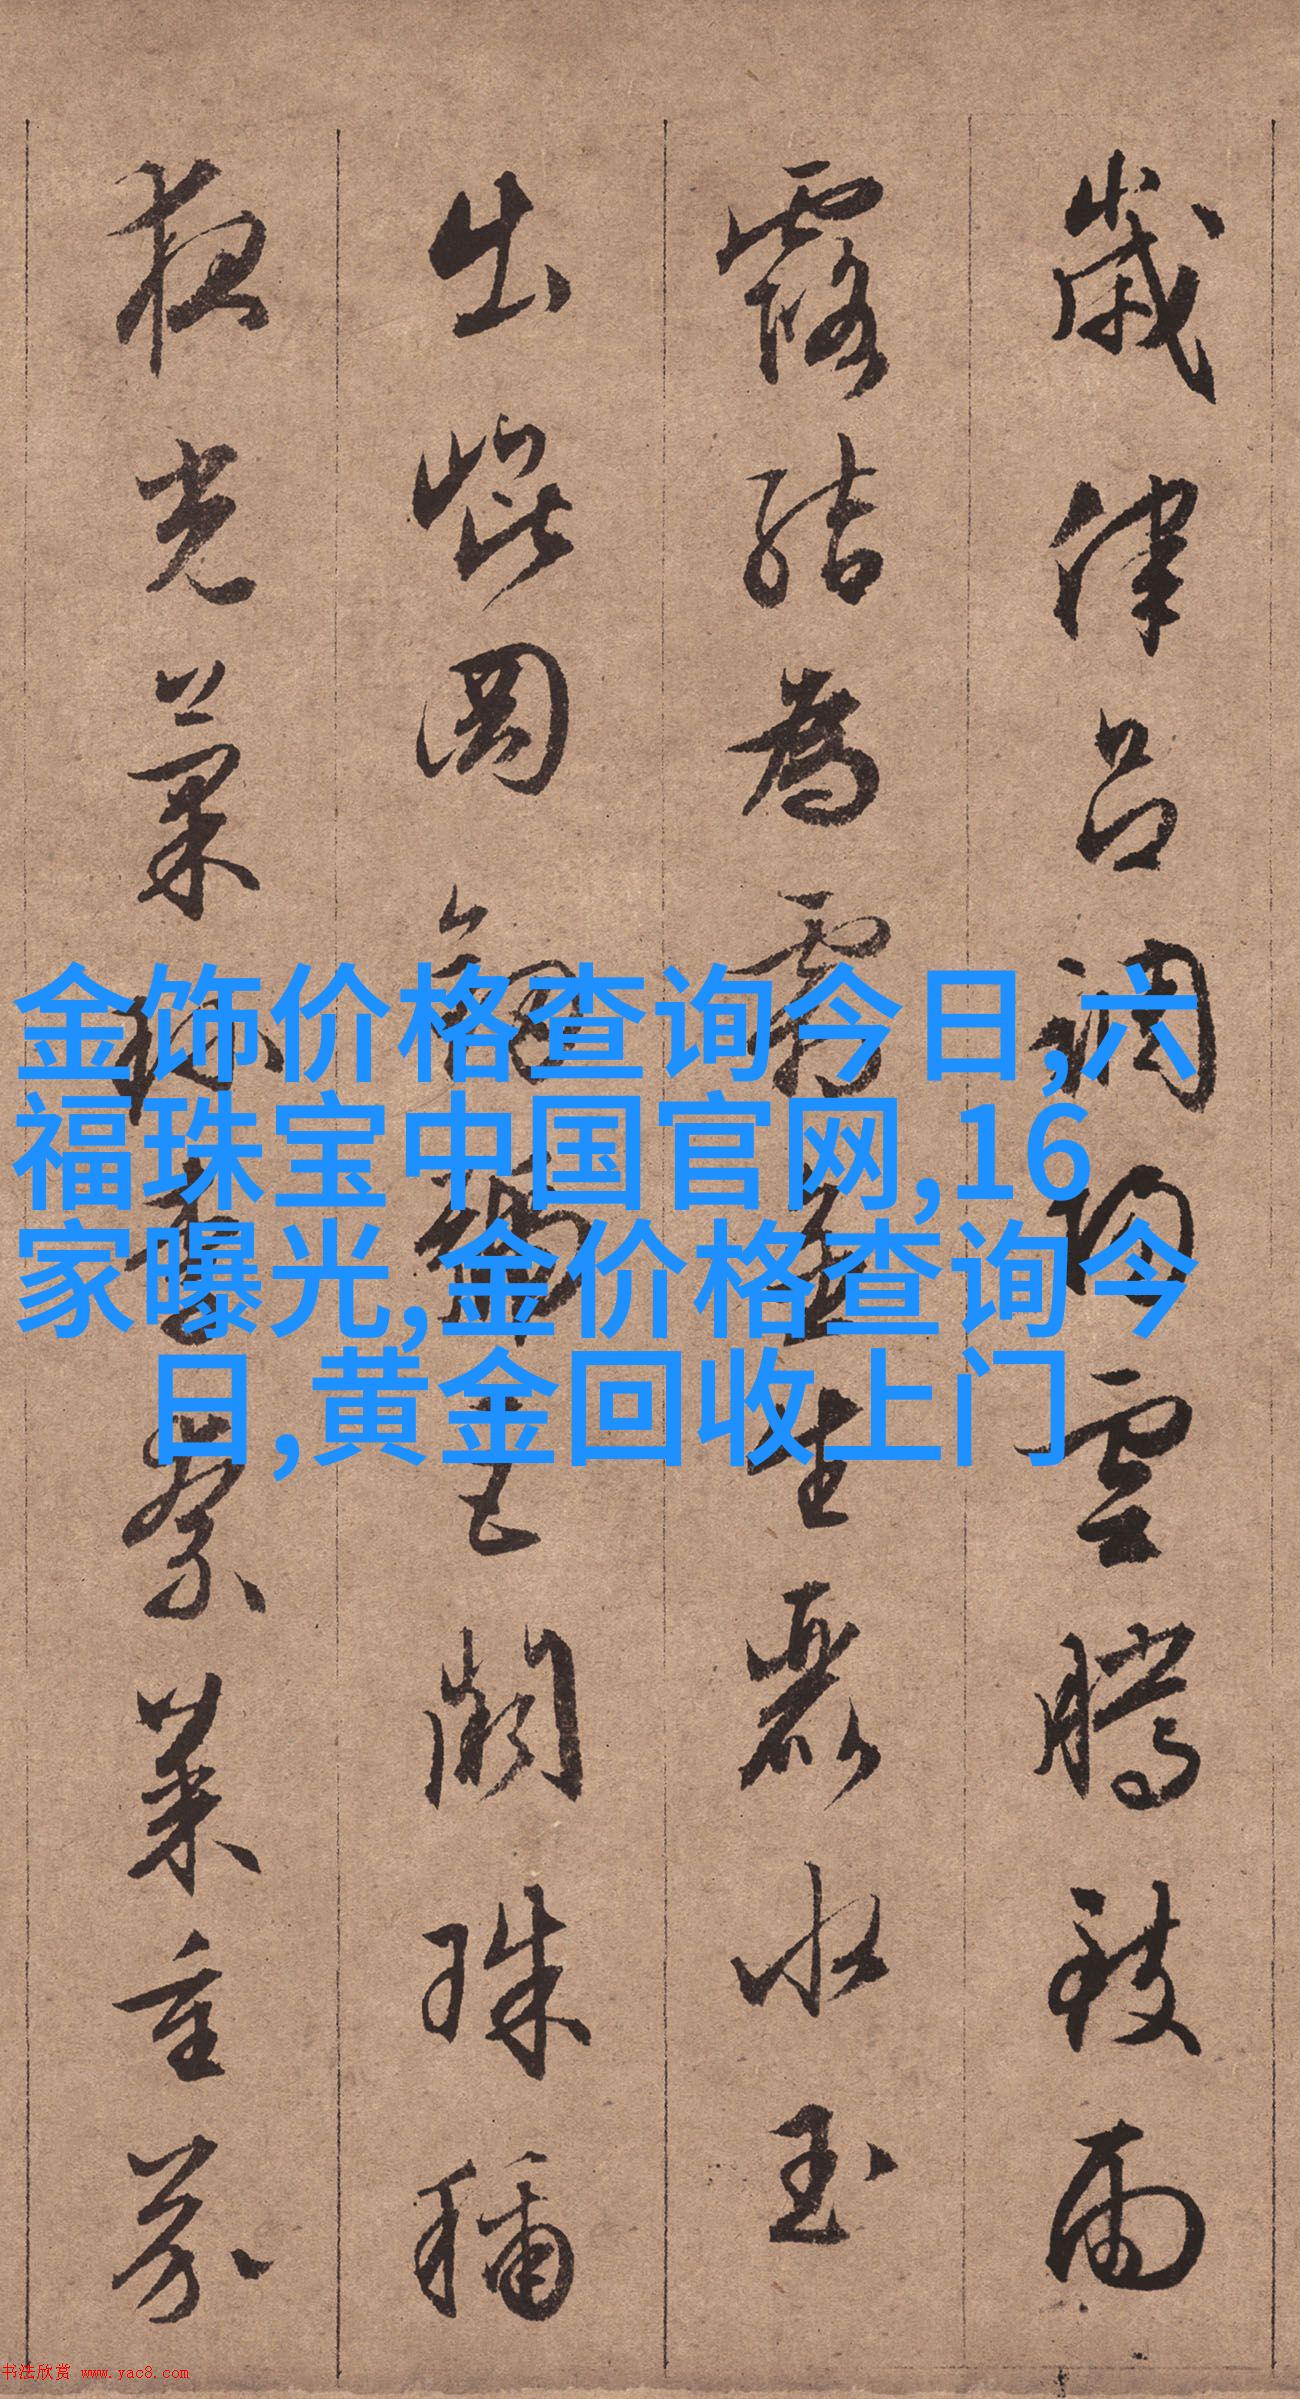 歲律呂調陽雲騰致雨
露結為霜金生麗水玉
出崐岡劍號巨闕珠稱
夜光菓珍李柰菜重芥
金饰价格查询今日,六
福珠宝中国官网,16
家曝光,金价格查询今
日,黄金回收上门
书法欣赏 www.yac8.com